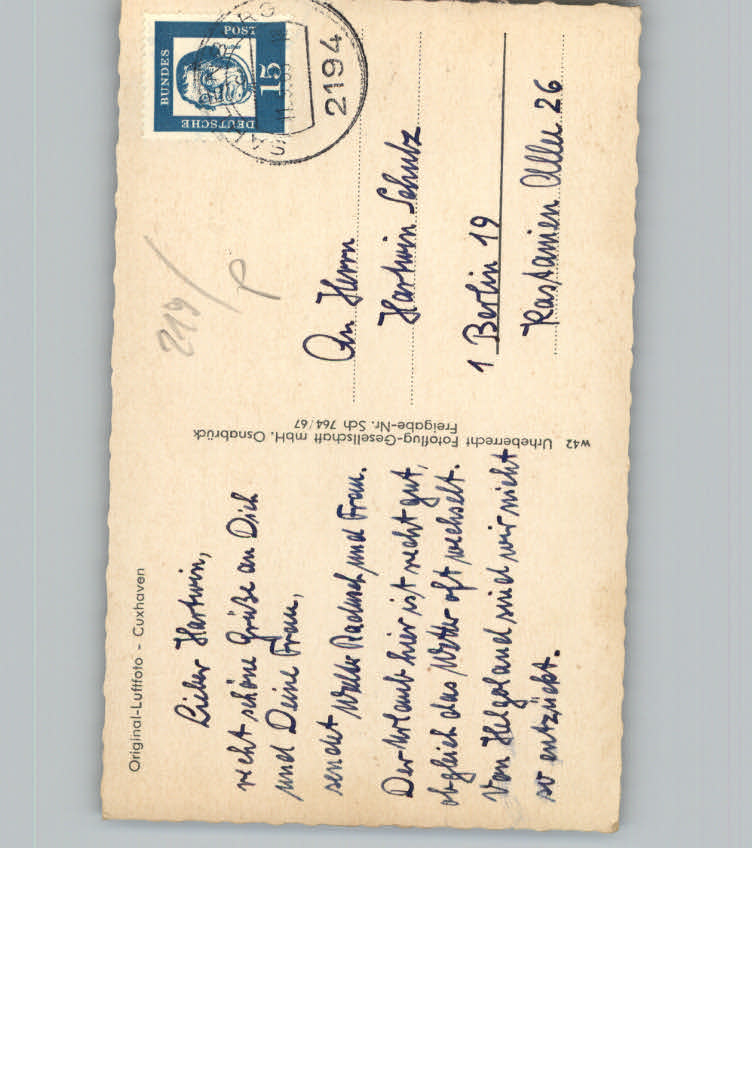 Original-Luftfoto - Cuxhaven
Lieber Hartwin,
recht schöne Grüße an Dich
und Deine Frau,
sendet Walter Radusch und Frau.
Der Urlaub hier ist recht gut,
obgleich das Wetter oft wechselt.
Von Helgoland sind wir nicht
so entzückt.
W42 Urheberrecht Fotoflug-Gesellschaft mbH. Osnabrück
Freigabe-Nr. Sch 764/67
DEUTSCHE
BUNDES
POST
15
2194
219/
P
An Herrn
Hartwin Schulz
1 Berlin 19
Kastanien Allee 26